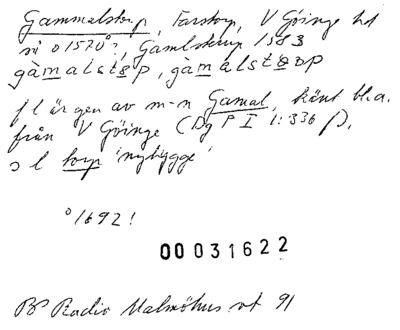 Gammalstorp, Farstorp, V Göinge hd
nu o 1570?, Gamlstrup 1583
gàmalstɵp, gàmalstɵop
fl är gen av m-n Gamal, känt bl.a.
från V Göinge (Dg P I 1:336 f),
o l torp 'nybygge'
o 1692!
00031622
Radio Malmöhus vt 91